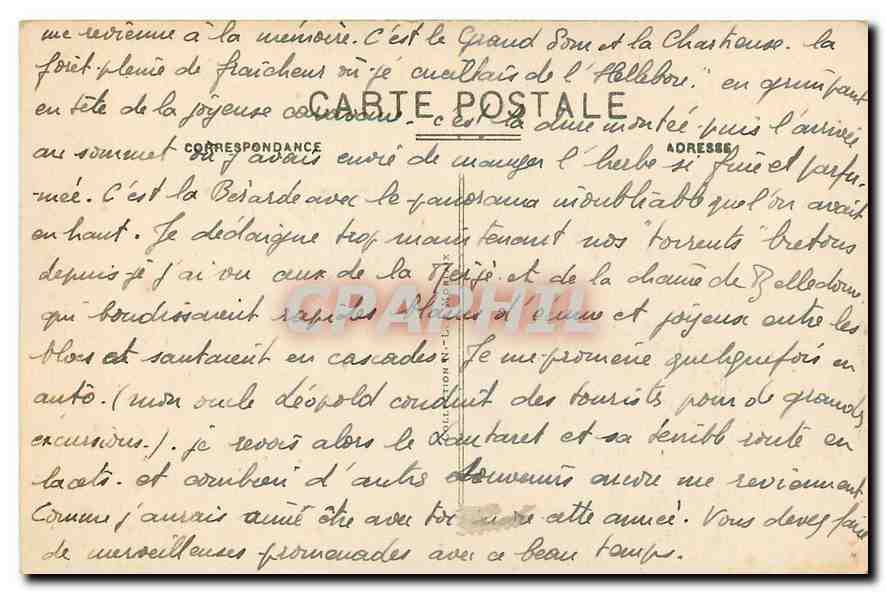 me revienne à la mémoire. C'est le Grand Som et la Chartreuse. la
forêt pleine de fraîcheur où je cueillais de l'"Hellebore" en grimpant
en tête de la joyeuse caravane. c'est la dure montée puis l'arrivée
CARTE POSTALE
CORRESPONDANCE
ADRESSE
au sommet où j'avais envie de manger l'herbe si fine et parfu-
-mée. C'est la Bérarde avec le panorama inoubliable que l'on avait
en haut. Je dédaigne trop maintenant nos "torrents" bretons
depuis que j'ai vu ceux de la Meije et de la chaîne de Belledonne
qui bondissaient rapides blancs d'écume et joyeux entre les
blocs et sautaient en cascades. Je me promène quelquefois en
auto. (mon oncle Léopold conduit des touristes pour de grandes
excursions.). je revois alors le Lautaret et sa terrible route en
lacets. et combien d'autres souvenirs encore me reviennent.
Comme j'aurais aimé être avec toi cette année. Vous devez faire
de merveilleuses promenades avec ce beau temps.
COLLECTION N.-L.
CPAPHIL